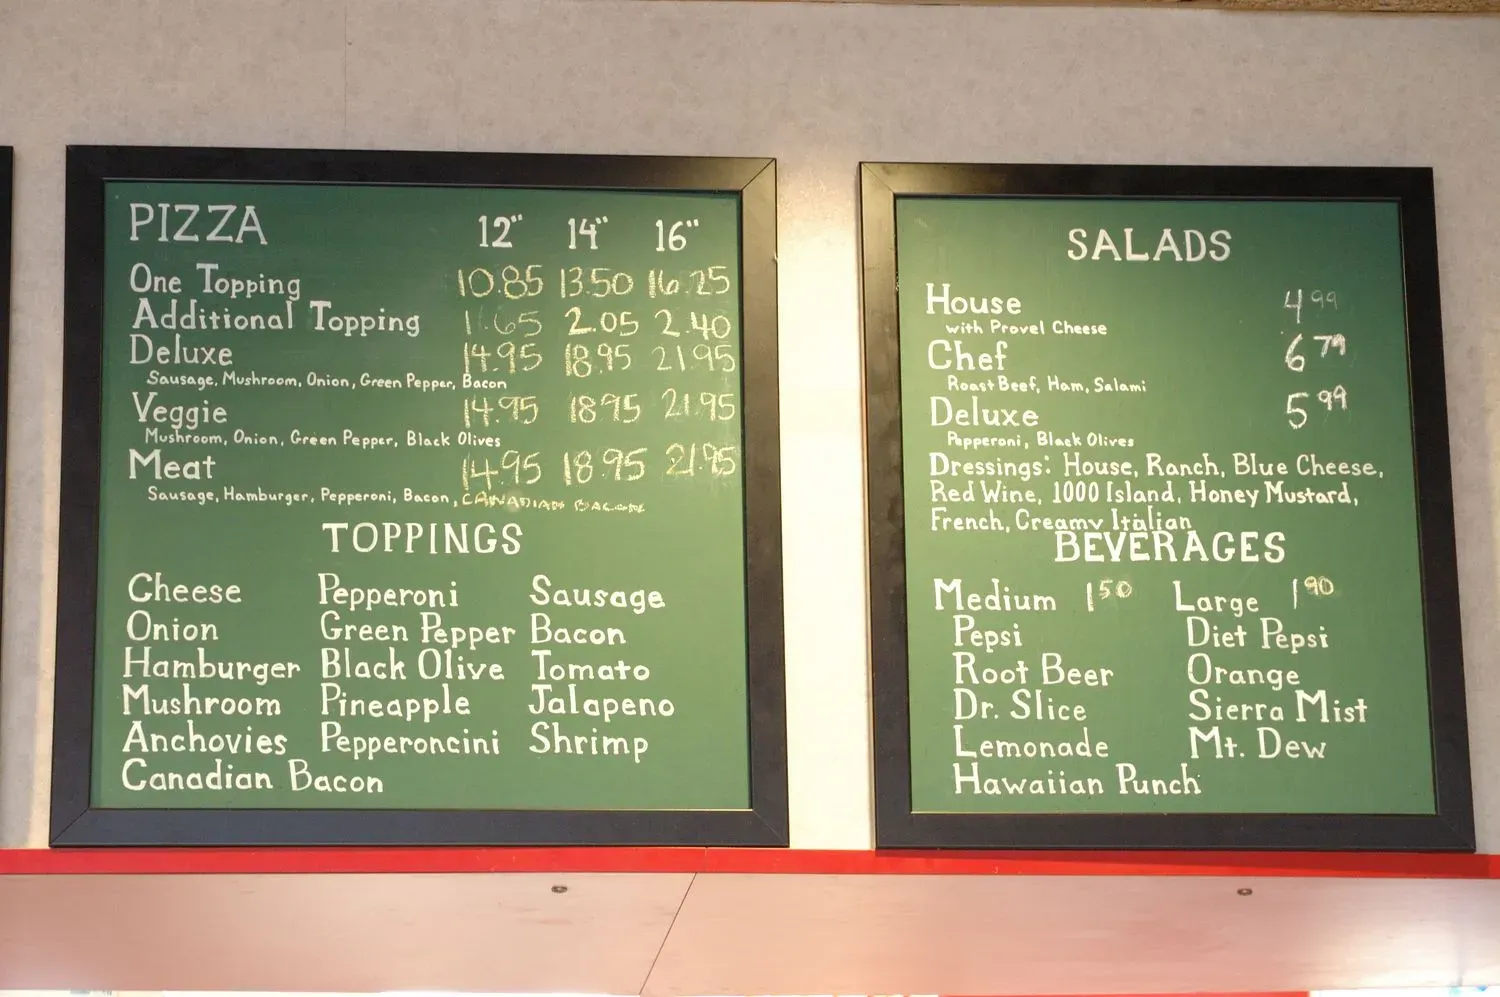 PIZZA 12" 14" 16"
One Topping 10.85 13.50 16.25
Additional Topping 1.65 2.05 2.40
Deluxe 14.95 18.95 21.95
Sausage, Mushroom, Onion, Green Pepper, Bacon
Veggie 14.95 18.95 21.95
Mushroom, Onion, Green Pepper, Black Olives
Meat 14.95 18.95 21.95
Sausage, Hamburger, Pepperoni, Bacon, CANADIAN BACON
TOPPINGS
Cheese Pepperoni Sausage
Onion Green Pepper Bacon
Hamburger Black Olive Tomato
Mushroom Pineapple Jalapeno
Anchovies Pepperoncini Shrimp
Canadian Bacon
SALADS
House 4 99
with Provel Cheese
Chef 6 79
Roast Beef, Ham, Salami
Deluxe 5 99
Pepperoni, Black Olives
Dressings: House, Ranch, Blue Cheese,
Red Wine, 1000 Island, Honey Mustard,
French, Creamy Italian
BEVERAGES
Medium 1 50 Large 1 90
Pepsi Diet Pepsi
Root Beer Orange
Dr. Slice Sierra Mist
Lemonade Mt. Dew
Hawaiian Punch